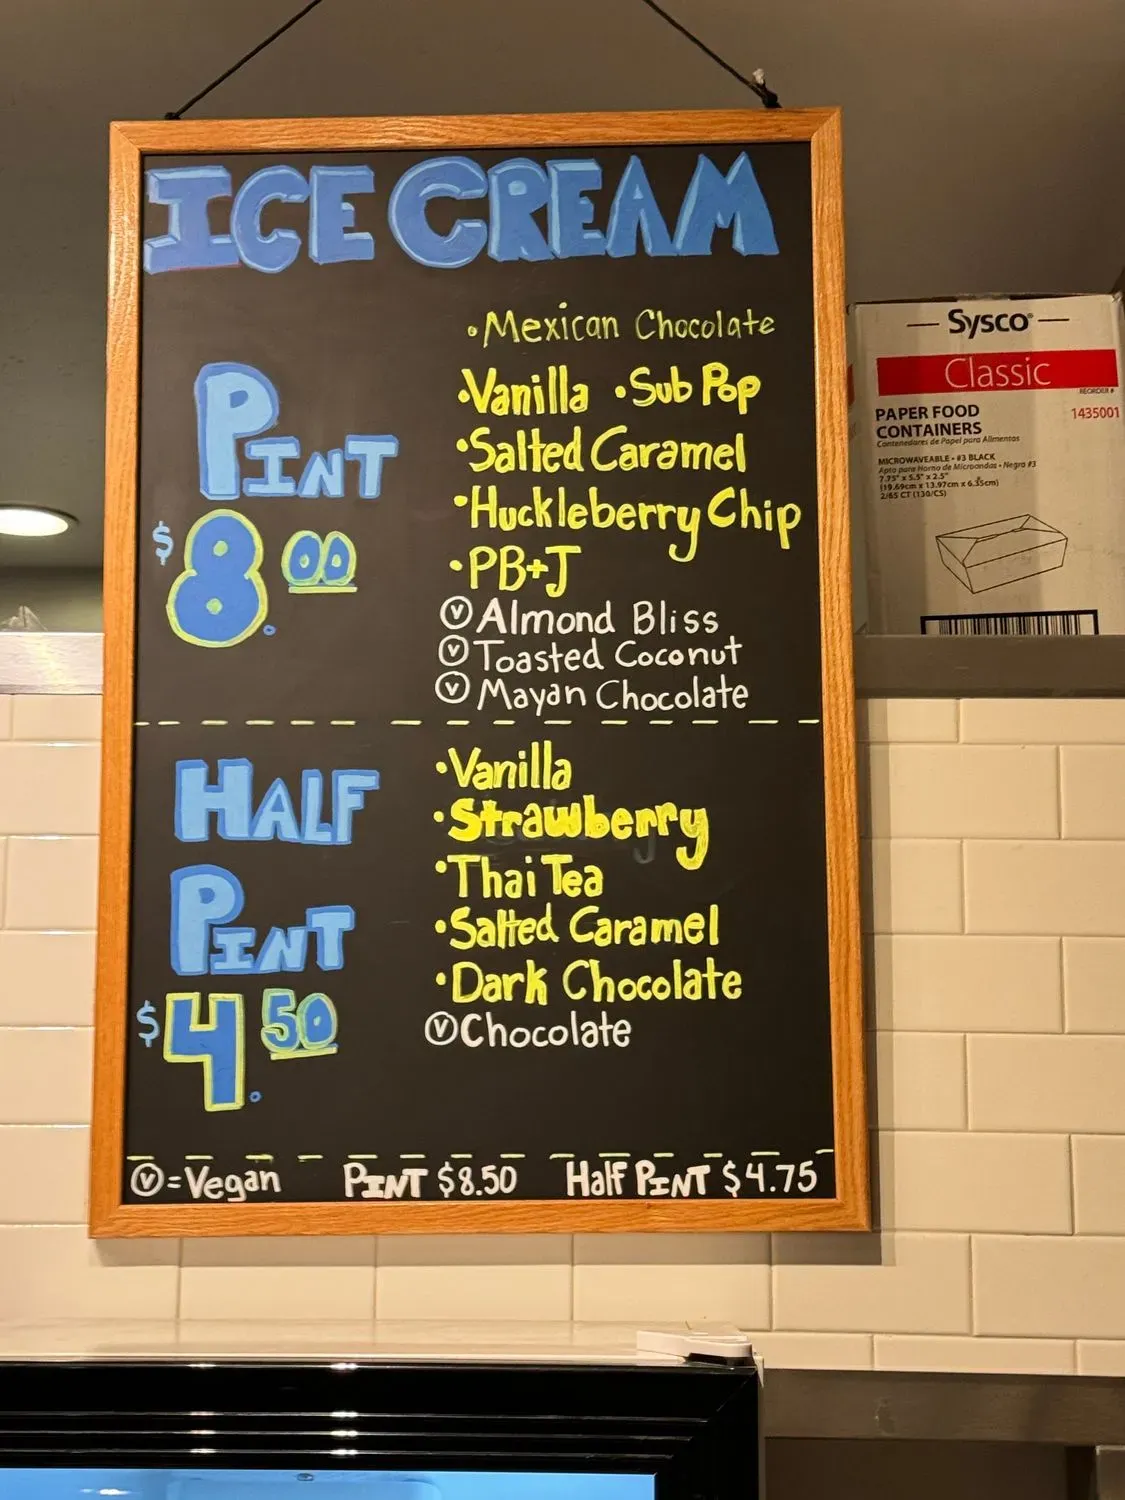 ICE CREAM
• Mexican Chocolate
PINT
$8.00
• Vanilla • Sub Pop
• Salted Caramel
• Huckleberry Chip
• PB+J
Ⓥ Almond Bliss
Ⓥ Toasted Coconut
Ⓥ Mayan Chocolate
HALF
PINT
$4.50
• Vanilla
• Strawberry
• Thai Tea
• Salted Caramel
• Dark Chocolate
Ⓥ Chocolate
Ⓥ = Vegan PINT $8.50 Half PINT $4.75
Sysco®
Classic
REORDER #
PAPER FOOD 1435001
CONTAINERS
Contenedores de Papel para Alimentos
MICROWAVEABLE • #3 BLACK
Apto para Horno de Microondas • Negro #3
7.75" x 5.5" x 2.5"
(19.69cm x 13.97cm x 6.35cm)
2/65 CT (130/CS)